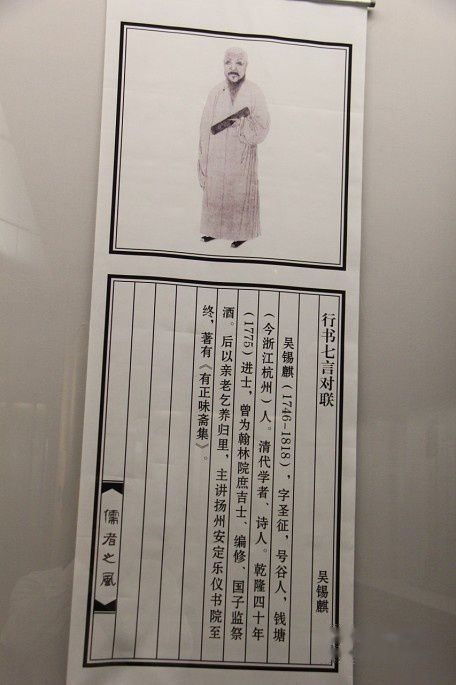 行书七言对联
吴锡麒
吴锡麒(1746-1818),字圣征,号谷人,钱塘
(今浙江杭州)人。清代学者、诗人。乾隆四十年
(1775)进士,曾为翰林院庶吉士、编修、国子监祭
酒。后以亲老乞养归里,主讲扬州安定乐仪书院至
终,著有《有正味斋集》。
儒者之风